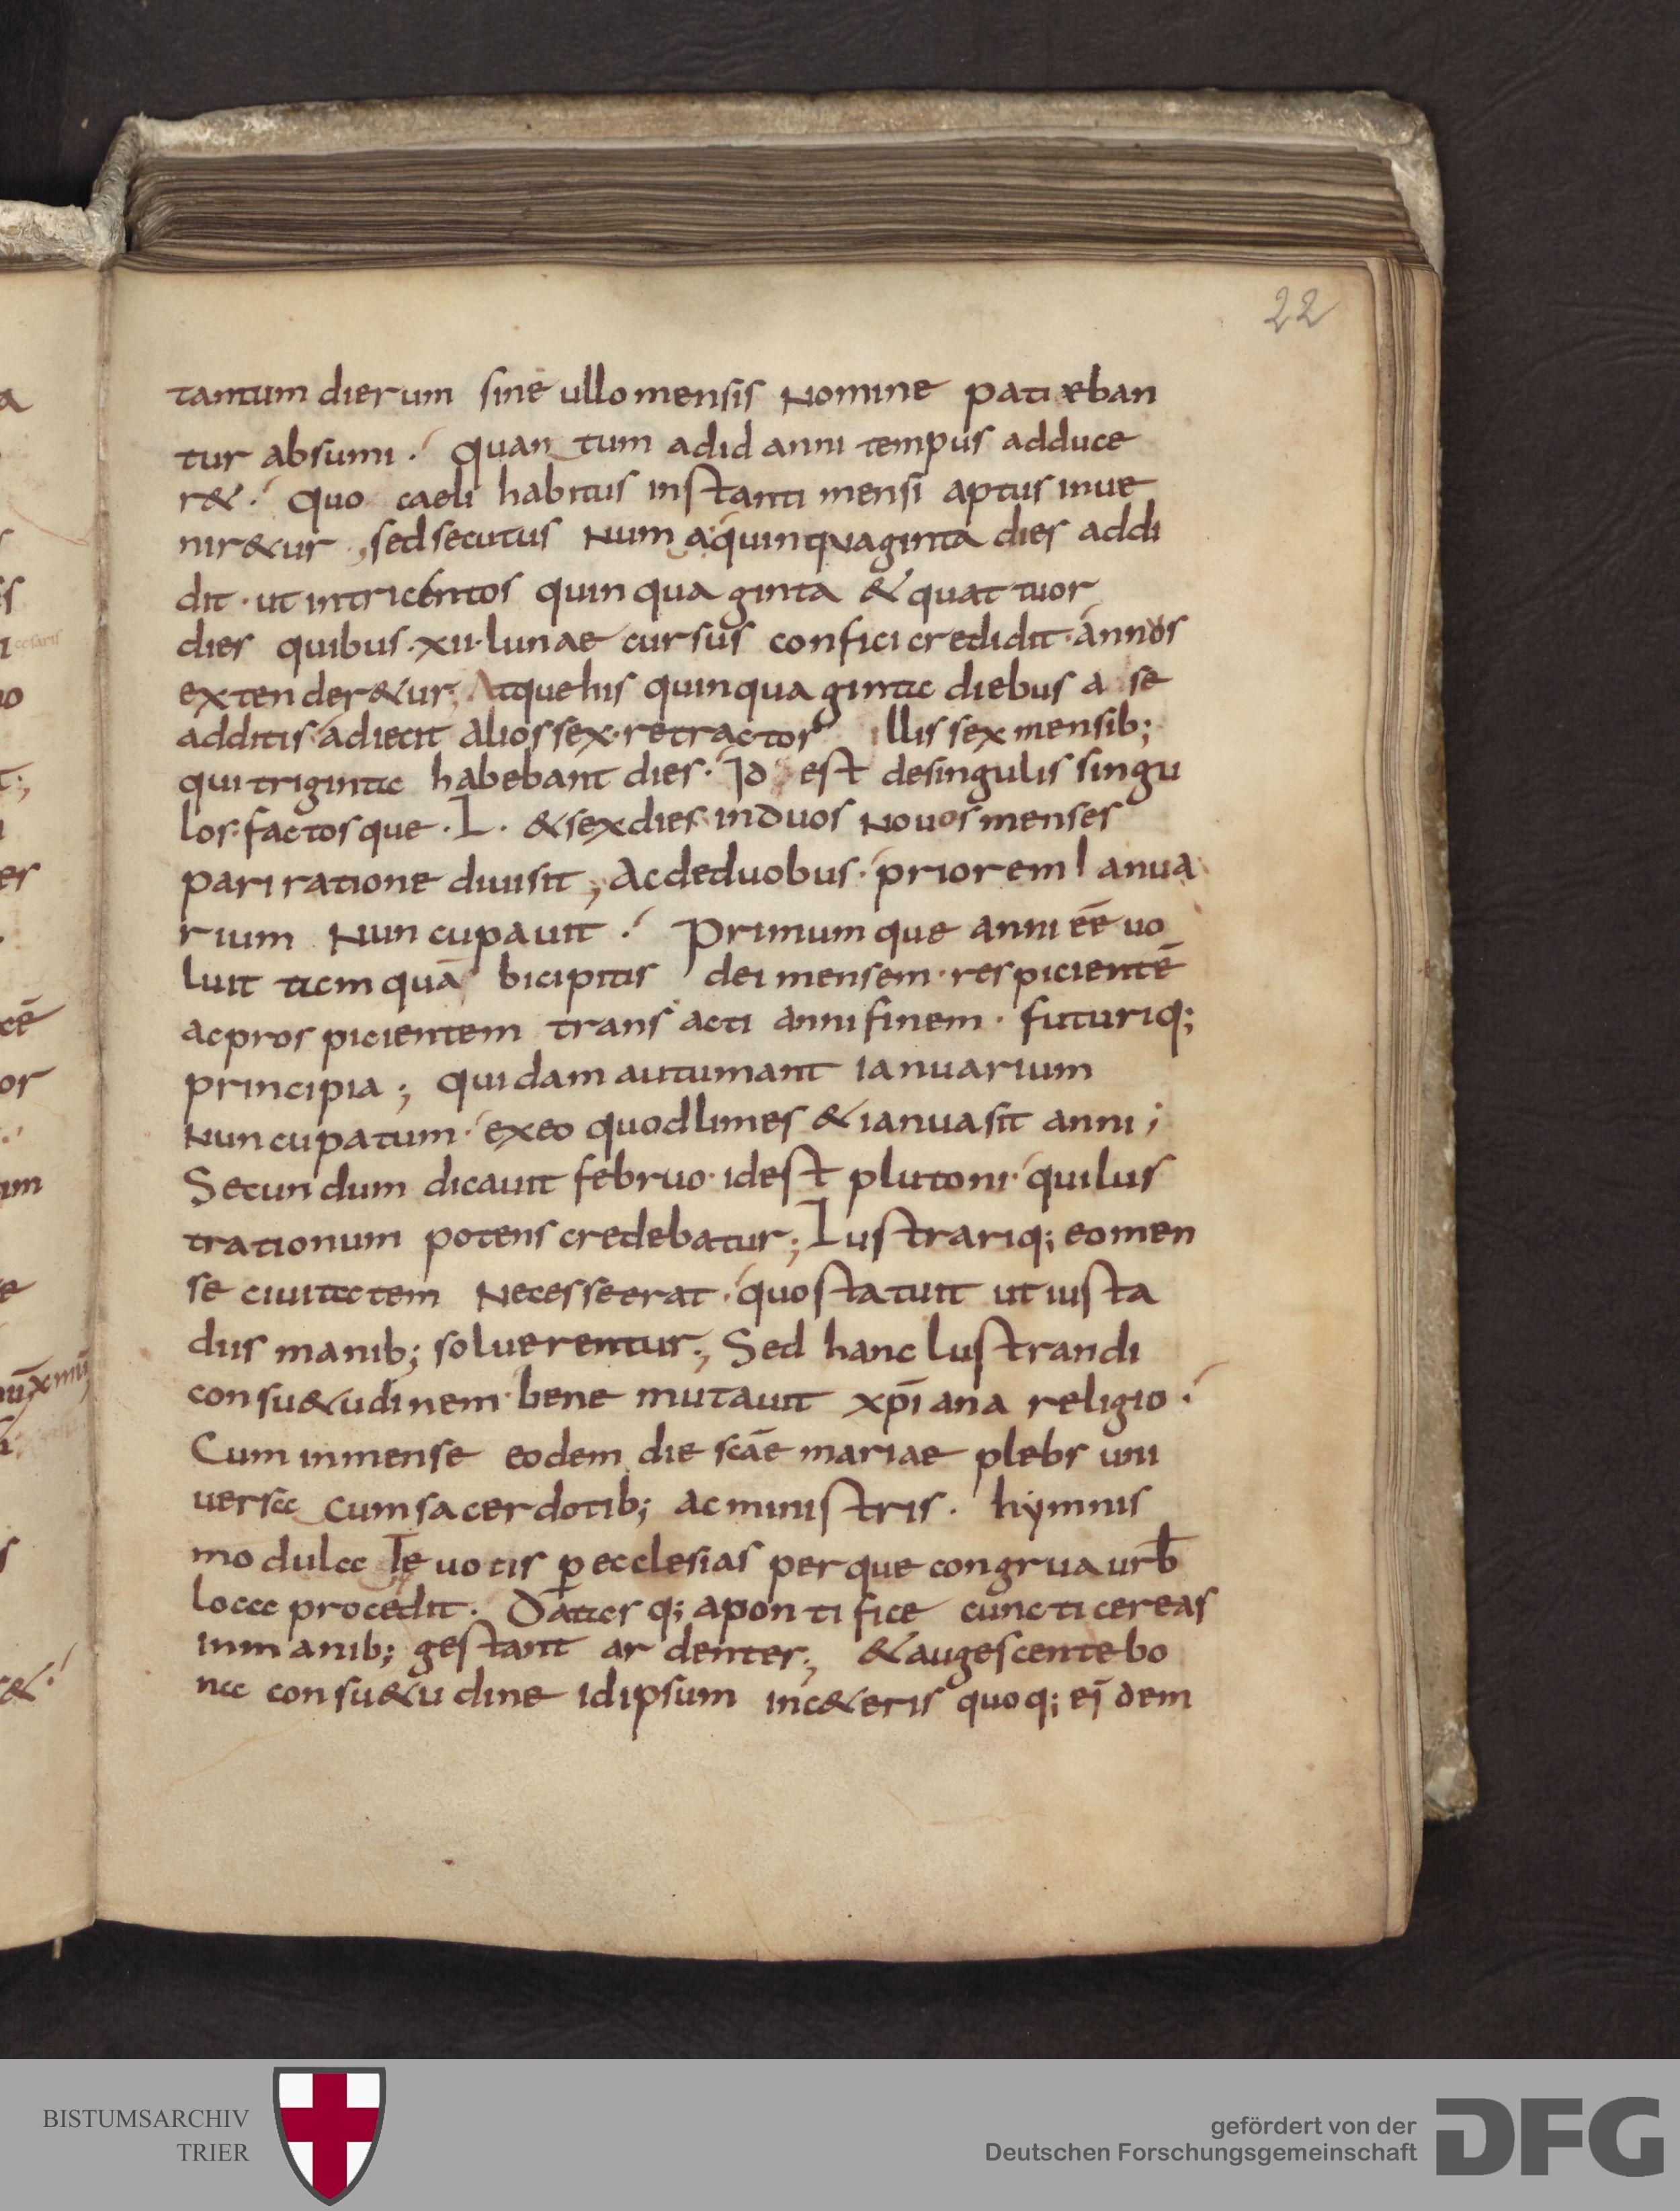 22
tantum dierum sine ullo mensis nomine patiẹban
tur absumi. quantum ad id anni tempus adduce
r&. quo caeli habitus instanti mensi aptus inue
nir&ur; sed secutus numa quinquaginta dies addi
dit. ut in tricentos quinquaginta & quattuor
dies quibus .xii. lunae cursus confici credidit. annos
extender&ur; Atque his quinquaginta diebus a se
additis adiecit alios sex. retractos illis sex mensib;
qui triginta habebant dies. Id est de singulis singu
los. factosque .L. & sex dies in duos nouos menses
pari ratione diuisit; Ac de duobus. priorem Ianua
rium nuncupauit. Primumque anni eē uo
luit tamquā bicipitis dei mensem. respicientē
ac prospicientem transacti anni finem. futuriq;
principia; quidam autumant ianuarium
nuncupatum. ex eo quod limes & ianua sit anni;
Secundum dicauit februo. id est plutoni. qui lus
trationum potens credebatur; Lustrariq; eo men
se ciuitatem necesse erat. quo statuit ut iusta
diis manib; soluerentur; Sed hanc lustrandi
consu&udinem. bene mutauit xp̄iana religio.
Cum in mense eodem die scāe mariae plebs uni
uersa cum sacerdotib; ac ministris. hymnis
modulatę uocis ꝑ ecclesias perque congrua urb̄
loca procedit. Datasq; a pontifice cuncti cereas
in manib; gestant ardentes; & augescente bo
na consu&udine id ipsum in c&eris quoq; eīdem
cesaris
BISTUMSARCHIV
TRIER
gefördert von der
Deutschen Forschungsgemeinschaft
DFG